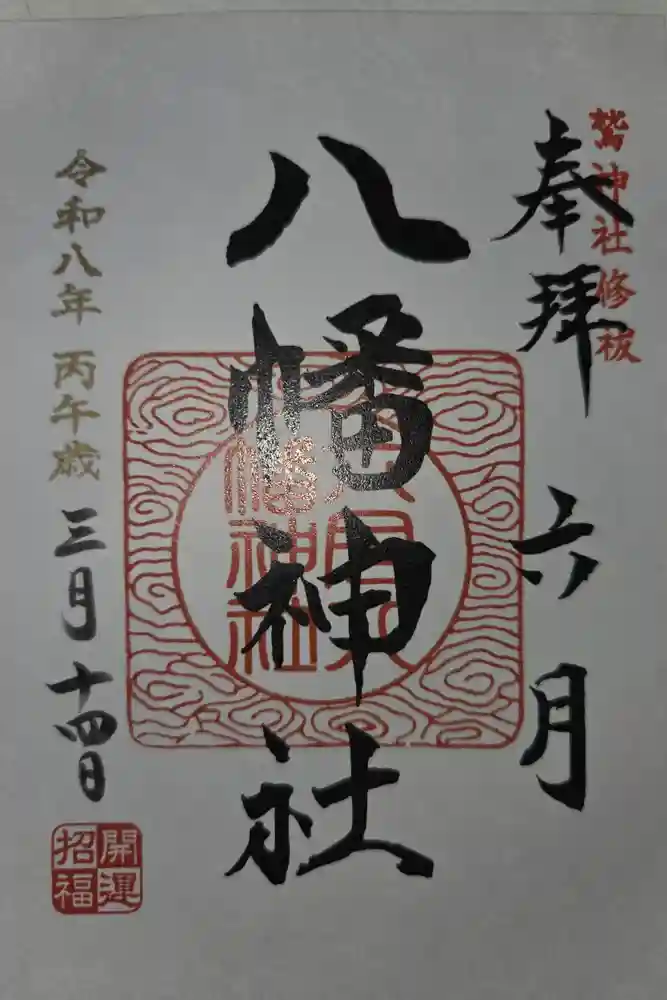 鷲神社修祓
奉拝 六月
八幡神社
六月八
幡神社
令和八年 丙午歳 三月十四日
開運
招福